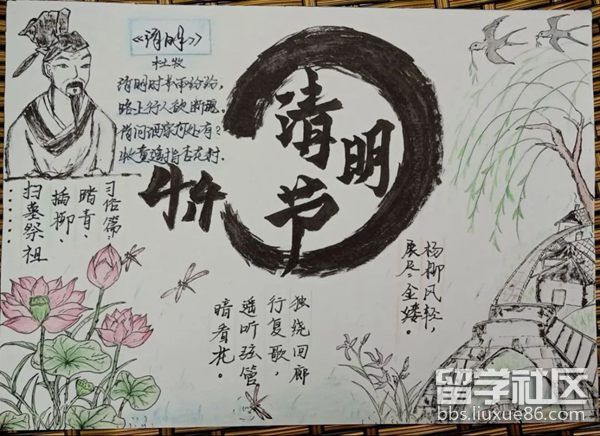 《清明》
杜牧
清明时节雨纷纷,
路上行人欲断魂
借问酒家何处有?
牧童遥指杏花村.
清明节
4.4
习俗篇:
踏青、
插柳、
扫墓祭祖
……
杨柳风轻,
展尽 金缕。
独绕回廊
行复歇,
遥听弦管
暗看花。
留学社区
bbs.liuxue86.com